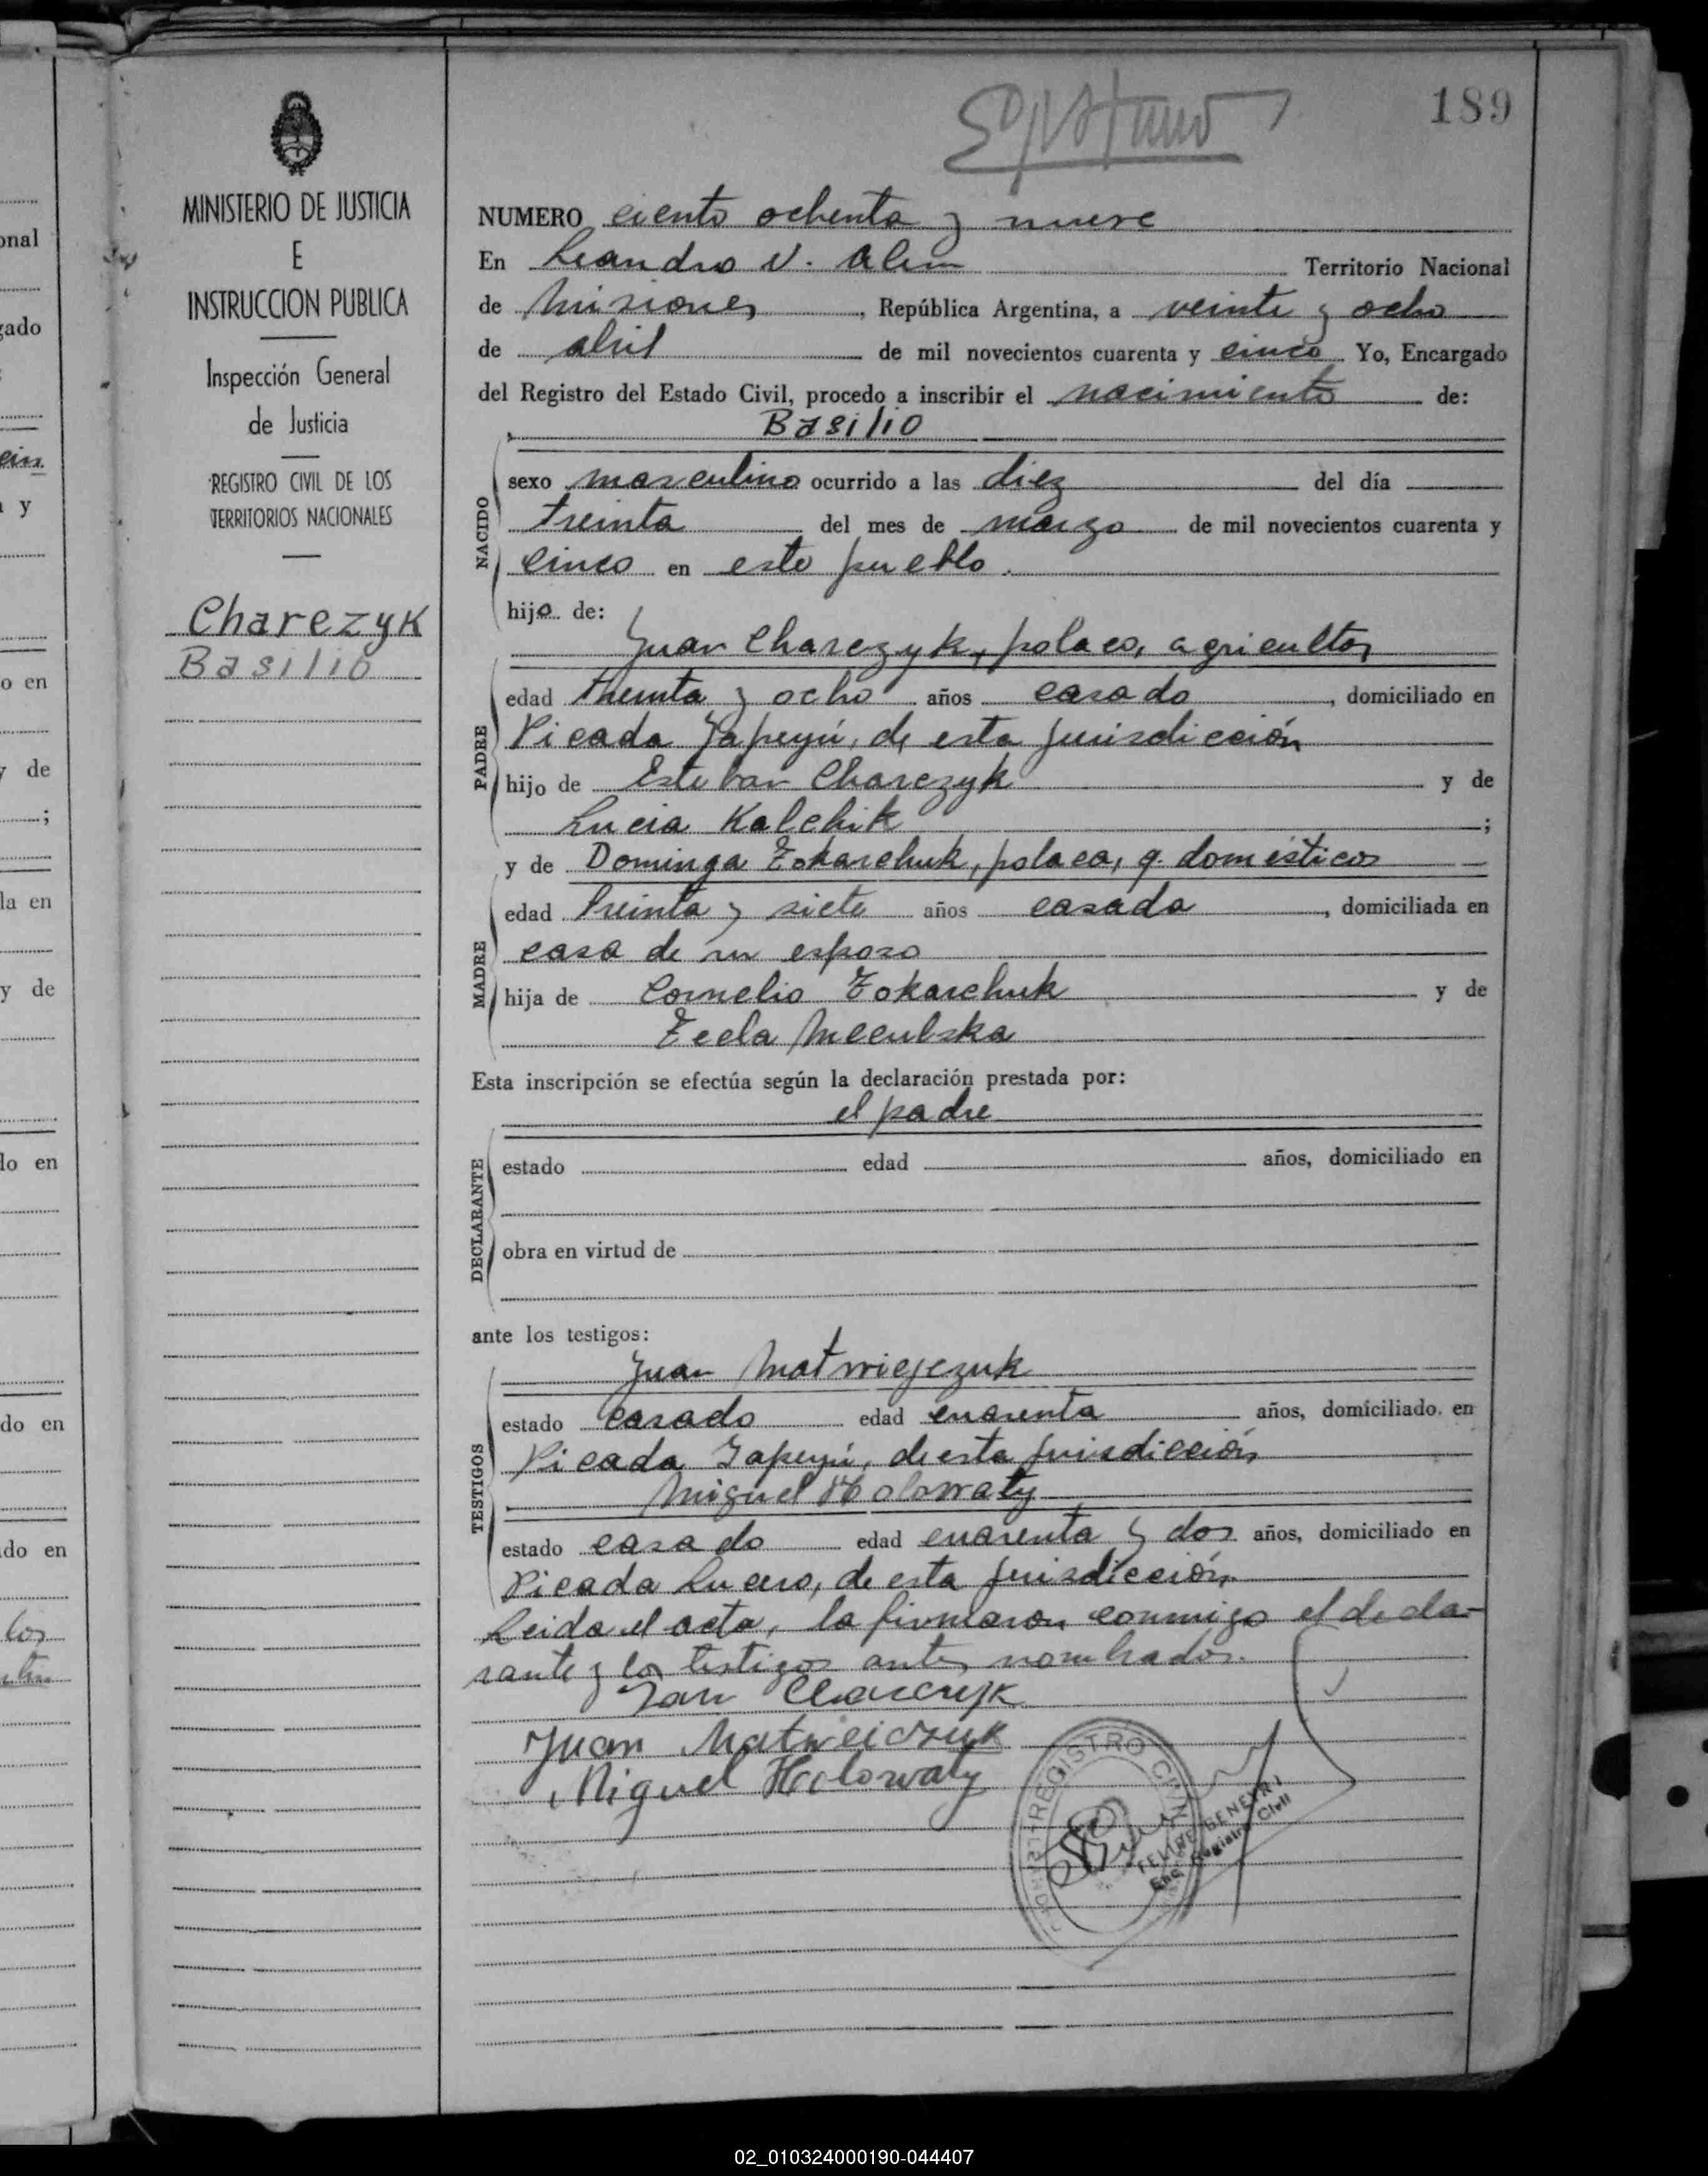 189
MINISTERIO DE JUSTICIA
E
INSTRUCCION PUBLICA
Inspección General
de Justicia
REGISTRO CIVIL DE LOS
TERRITORIOS NACIONALES
Charezyk
Basilio
NUMERO ciento ochenta y nueve
En Leandro N. Alem Territorio Nacional
de Misiones, República Argentina, a veinte y ocho
de abril de mil novecientos cuarenta y cinco Yo, Encargado
del Registro del Estado Civil, procedo a inscribir el nacimiento de:
Basilio
NACIDO
sexo masculino ocurrido a las diez del día
treinta del mes de marzo de mil novecientos cuarenta y
cinco en este pueblo.
hijo de:
Juan Charczyk, polaco, agricultor
PADRE
edad treinta y ocho años casado, domiciliado en
Picada Yapeyú, de esta jurisdicción
hijo de Esteban Charczyk y de
Lucia Kalchik;
y de Dominga Tokarchuk, polaca, q. domésticos
MADRE
edad treinta y siete años casada, domiciliada en
casa de su esposo
hija de Cornelio Tokarchuk y de
Tecla
Esta inscripción se efectúa según la declaración prestada por:
el padre
DECLARANTE
estado edad años, domiciliado en
obra en virtud de
ante los testigos:
Juan Matwiejczuk
TESTIGOS
estado casado edad cuarenta años, domiciliado en
Picada Yapeyú, de esta jurisdicción
Miguel Holowaty
estado casado edad cuarenta y dos años, domiciliado en
Picada Lucero, de esta jurisdicción
Leida el acta, la firmaron conmigo el decla-
rante y los testigos antes nombrados.
Jan Charczyk
Juan Matweiczuk
Miguel Holowaty
REGISTRO CIVIL
FELIPE GENEYRI
Enc. Registro Civil
onal
gado
ein
a y
o en
y de
;
la en
y de
lo en
do en
do en
los
02_010324000190-044407